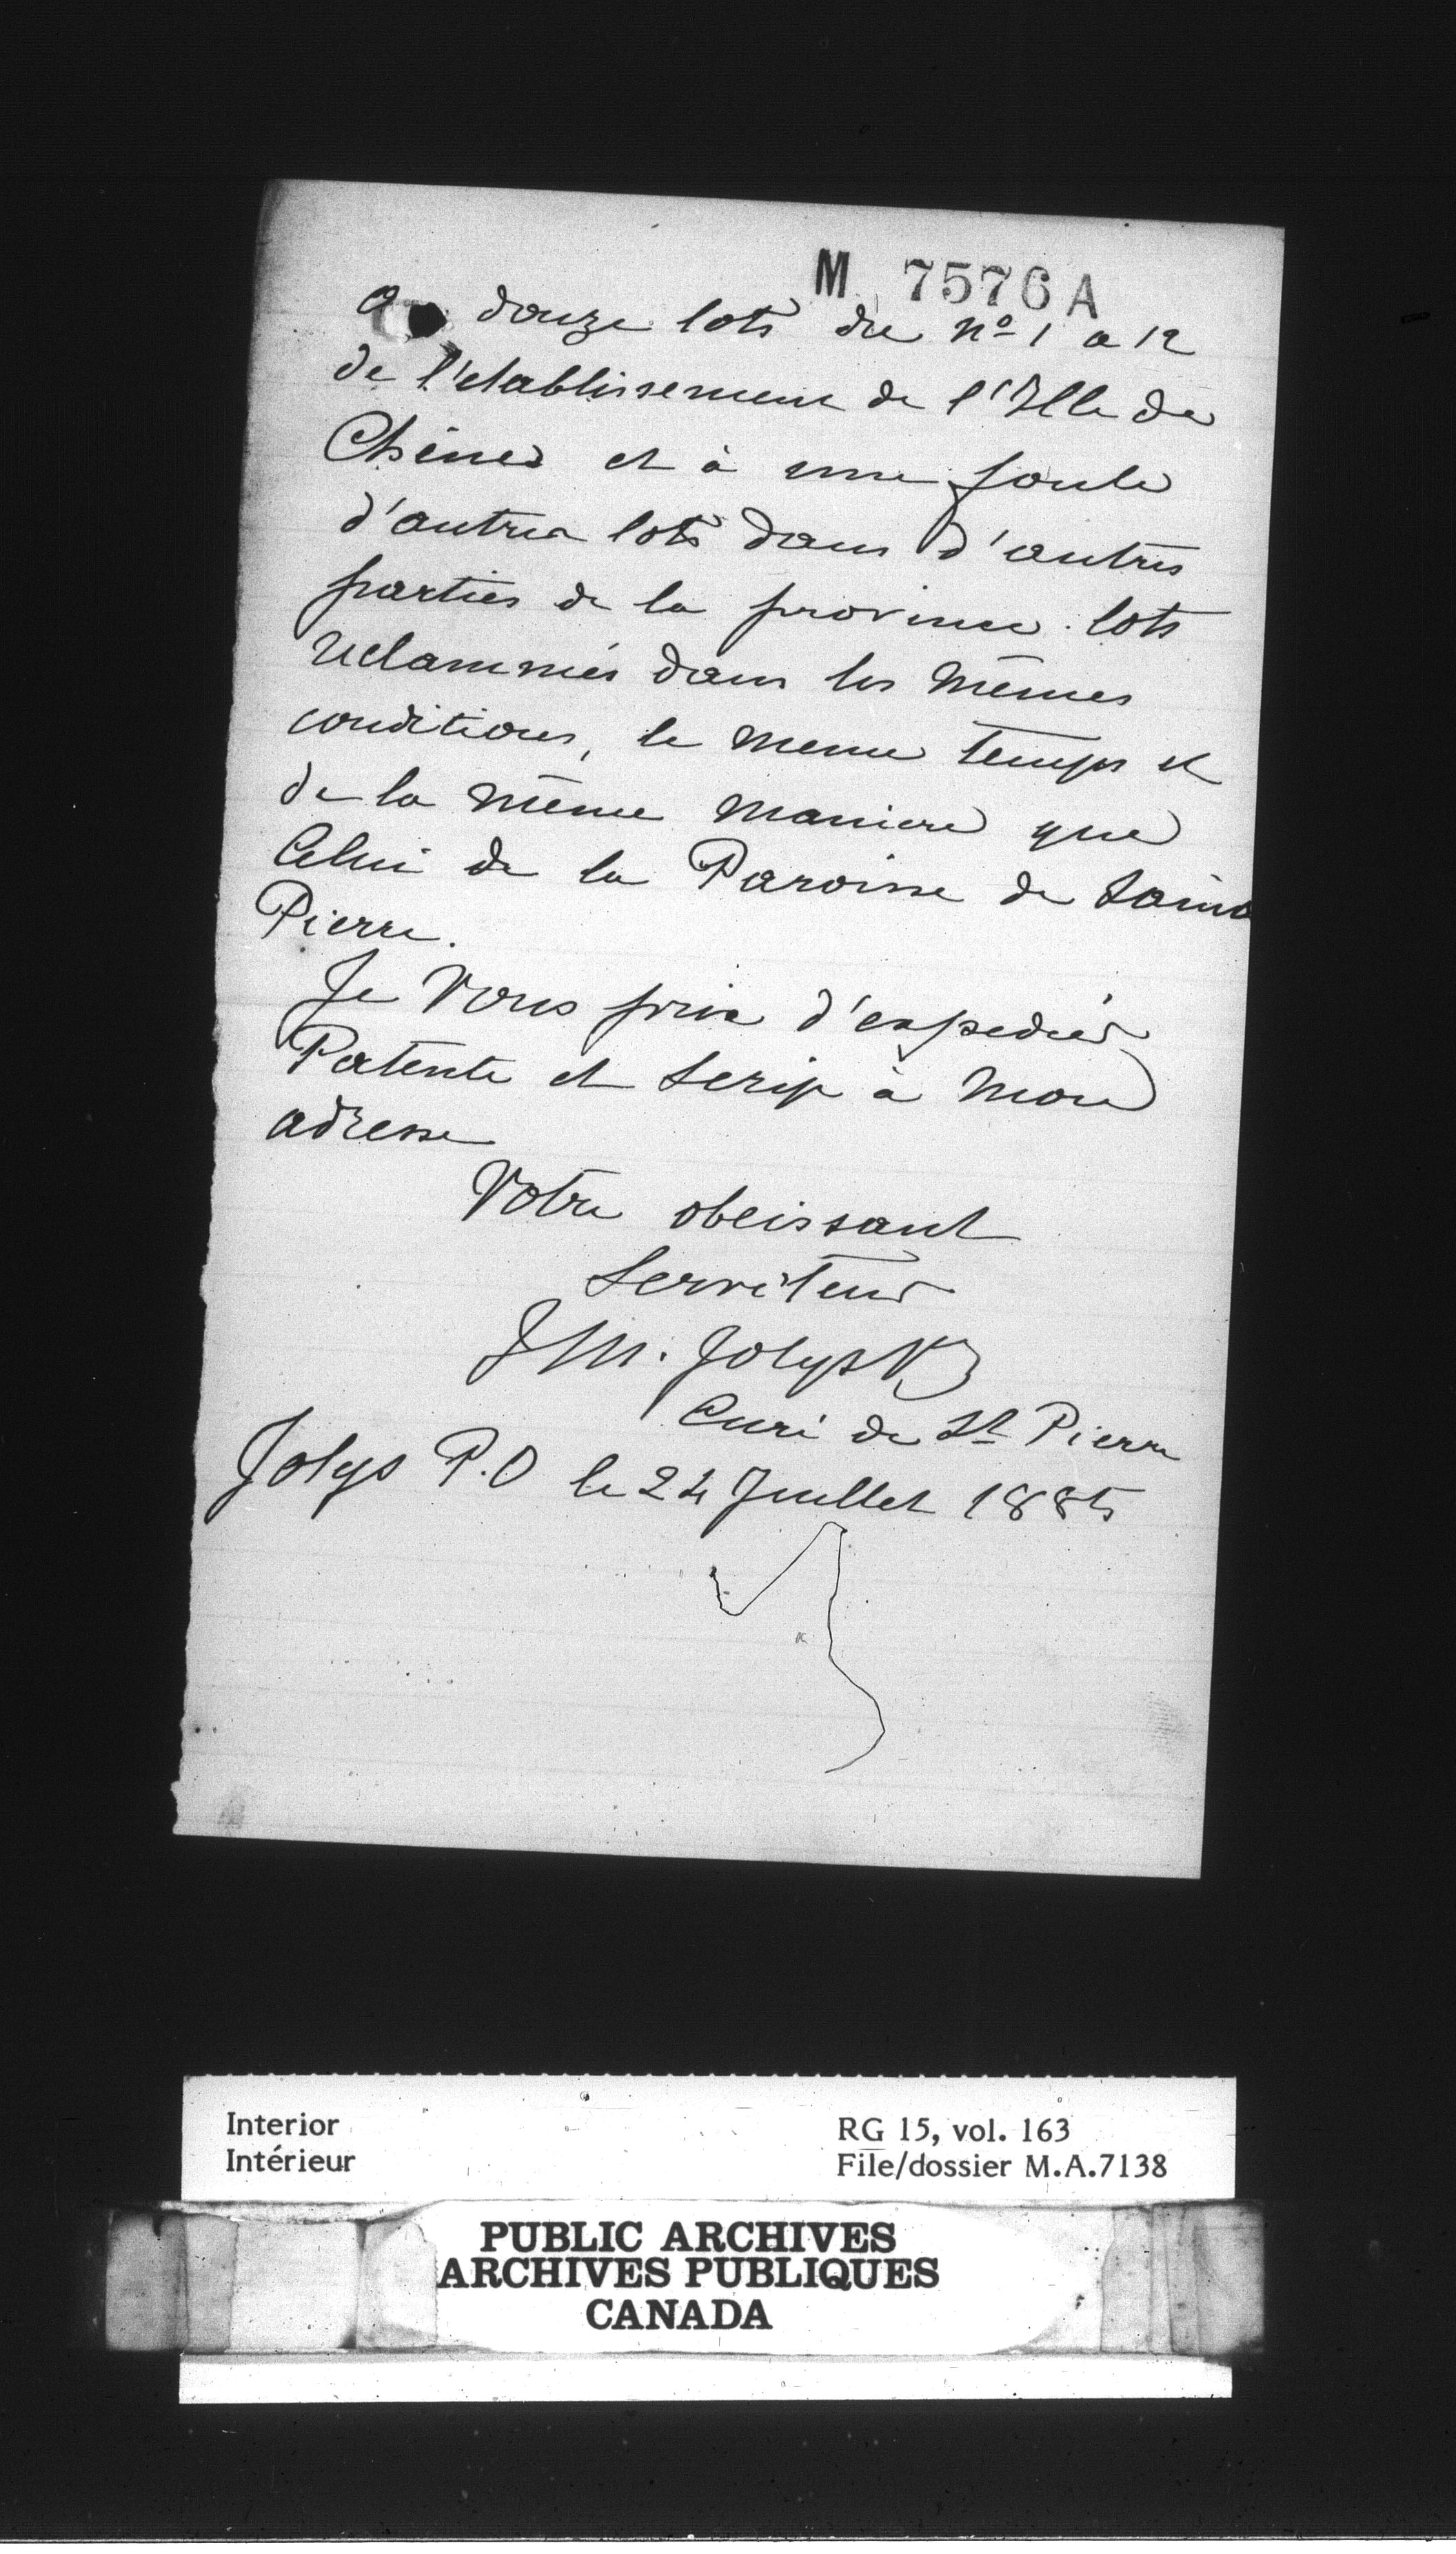 M 7576 A
a douze lots du Nº 1 a 12
de l'etablissement de l'Ille de
Chênes et à une foule
d'autres lots dans d'autres
parties de la province. lots
reclammés dans les mêmes
conditions, le meme temps et
de la même maniere que
Celui de la Paroisse de Saint
Pierre.
Je vous prie d'expedier
Patente et Scrip à mon
adresse
Votre obeissant
Serviteur
J M. Jolys
Curé de St Pierre
Jolys P.O le 24 Juillet 1885
Interior
Intérieur
RG 15, vol. 163
File/dossier M.A.7138
PUBLIC ARCHIVES
ARCHIVES PUBLIQUES
CANADA